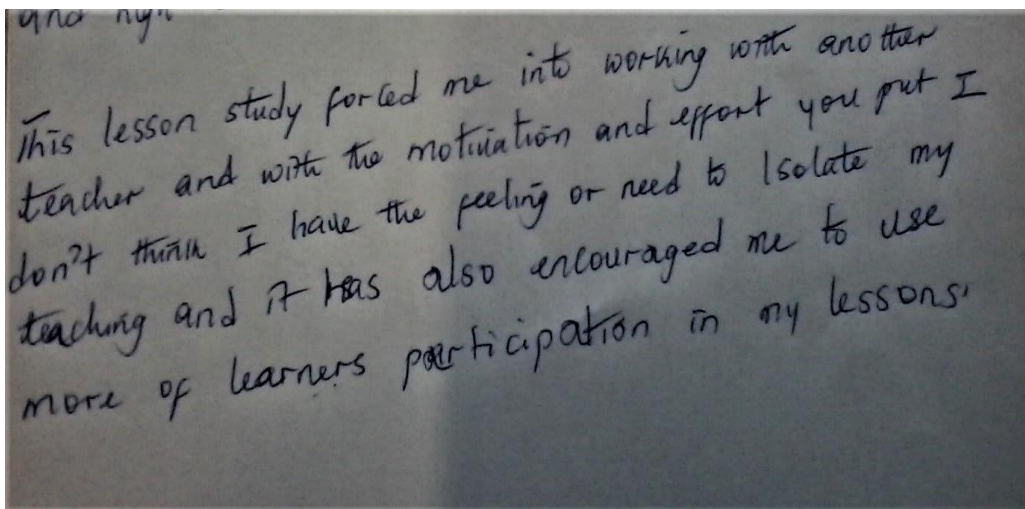 and high
This lesson study forced me into working with another
teacher and with the motivation and effort you put I
don't think I have the feeling or need to Isolate my
teaching and it has also encouraged me to use
more of learners participation in my lessons.